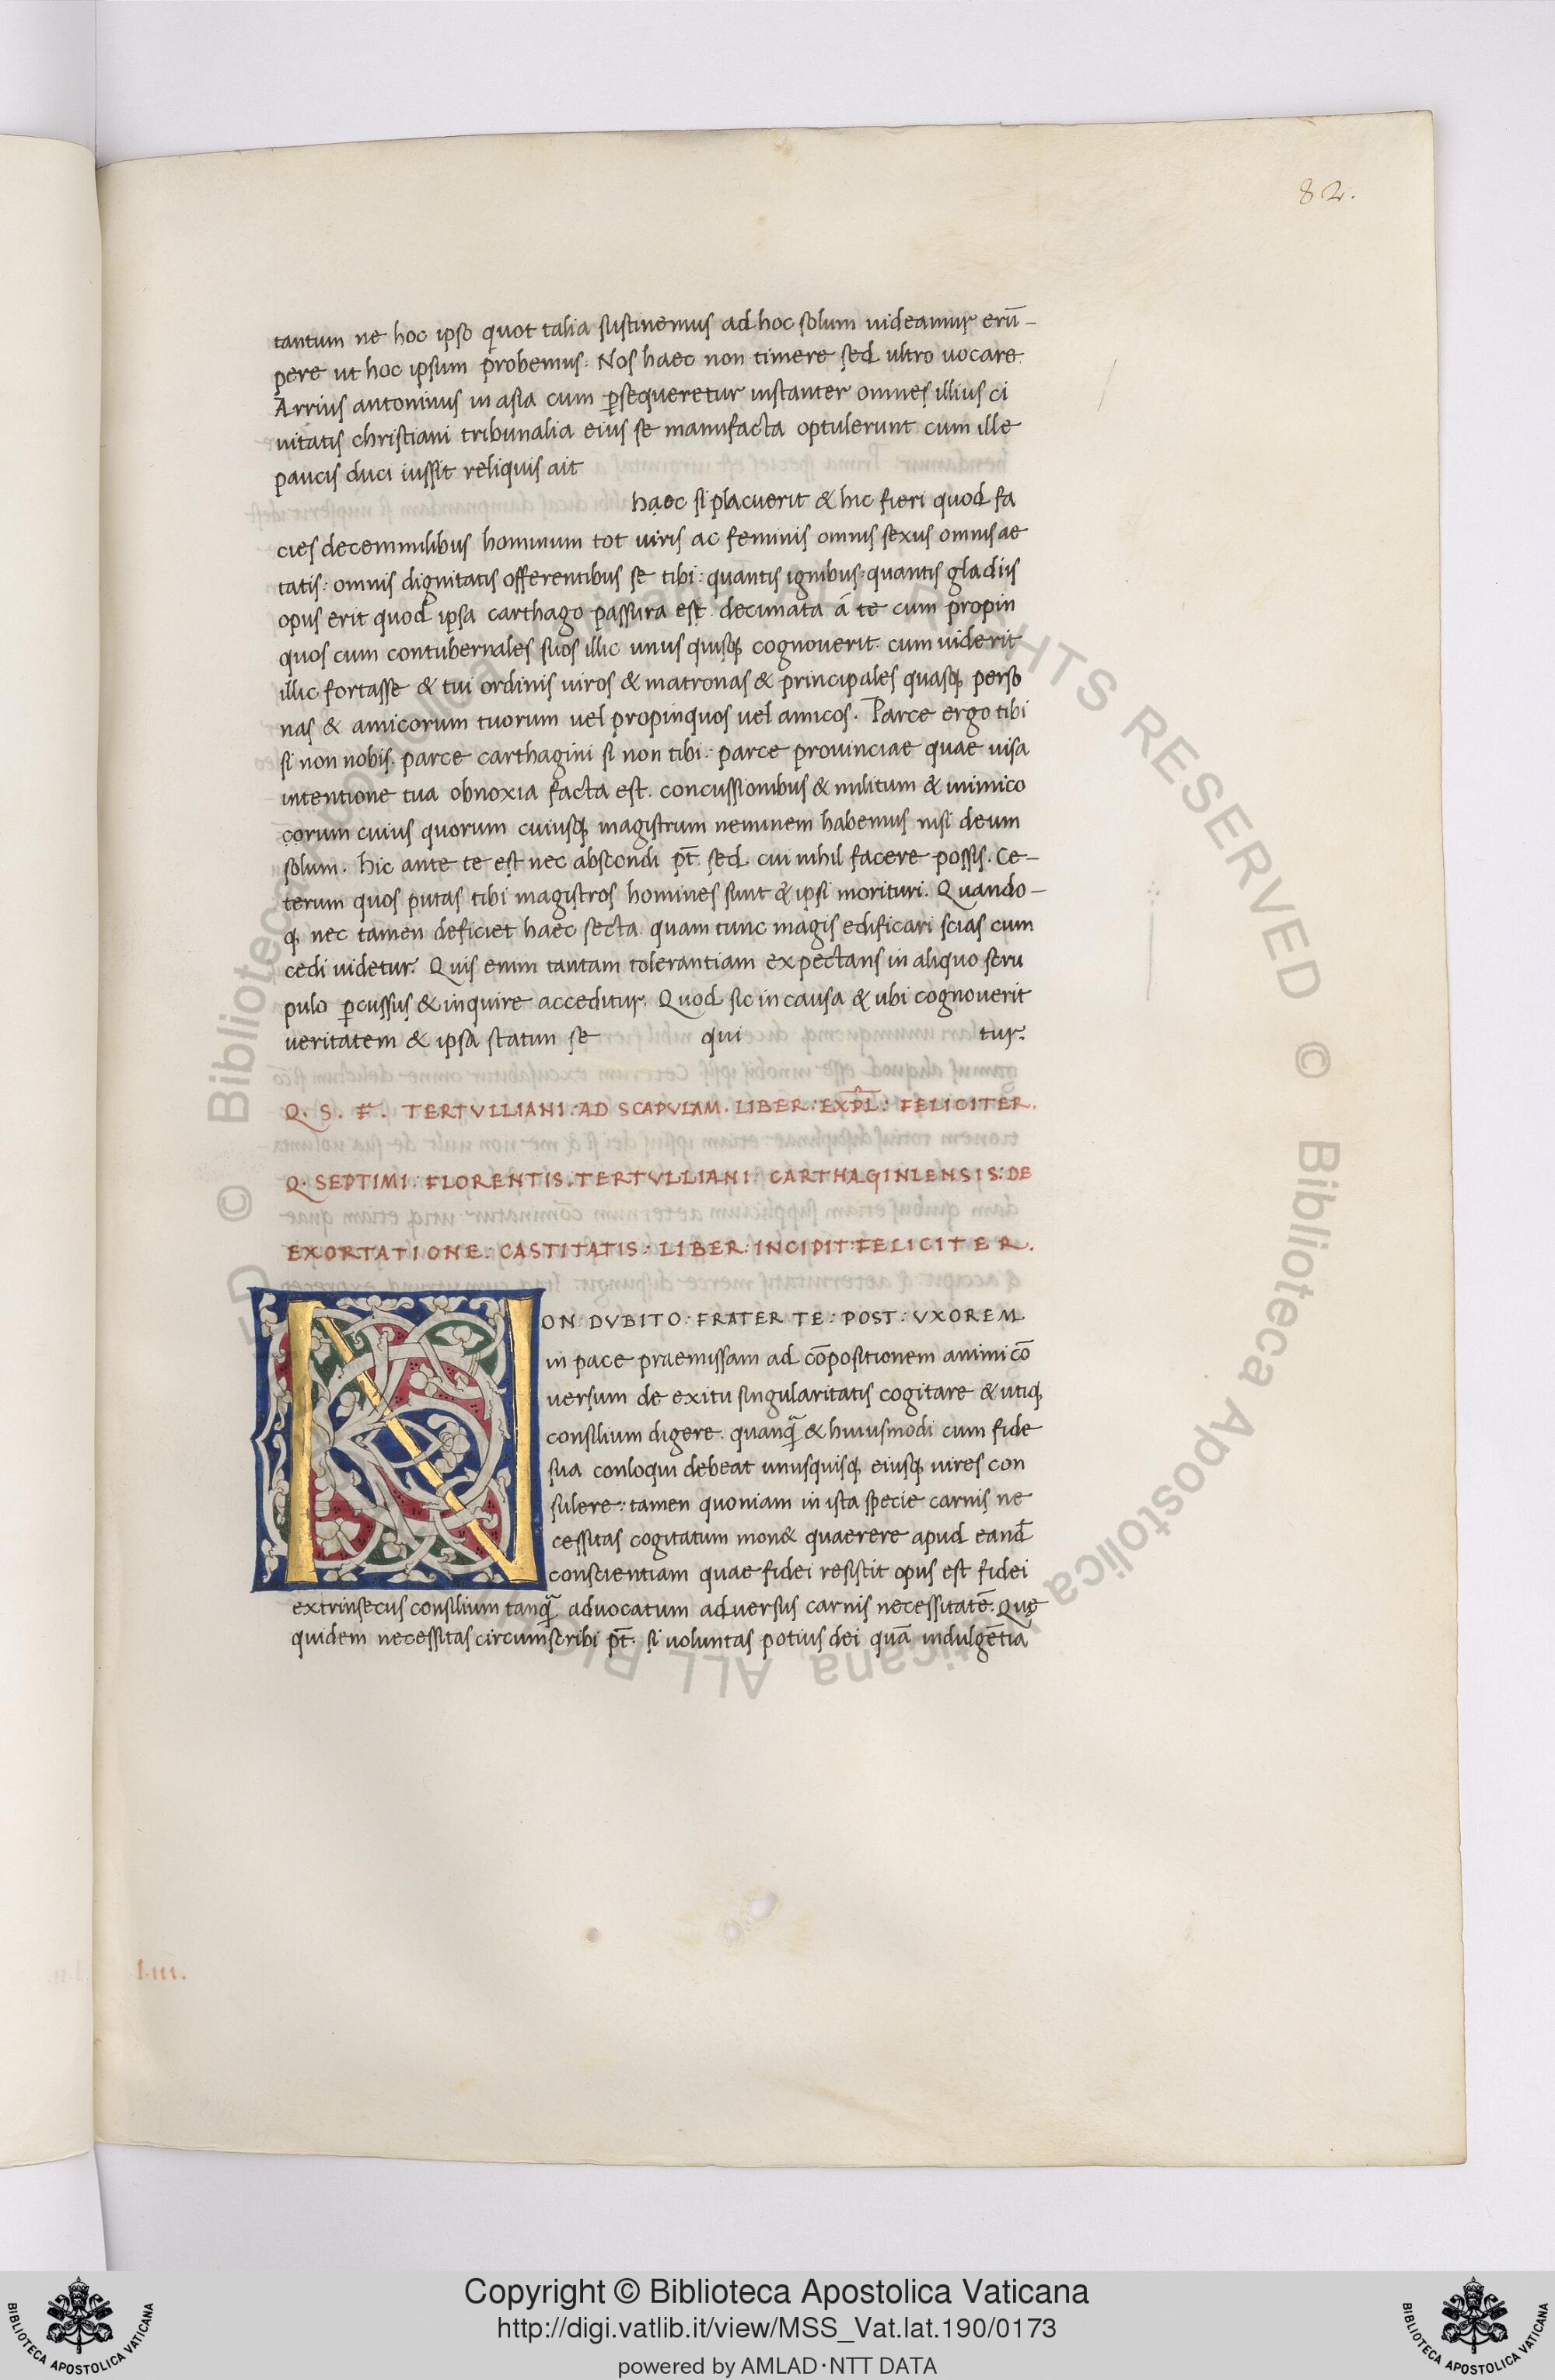 82.
tantum ne hoc ipso quot talia sustinemus ad hoc solum uideamur erū-
pere ut hoc ipsum probemus. Nos haec non timere sed ultro uocare.
Arrius antoninus in asia cum ꝑsequeretur instanter omnes illius ci
uitatis christiani tribunalia eius se manufacta optulerunt cum ille
paucis duci iussit reliquis ait
haec si placuerit & hic fieri quod fa
cies decemmilibus hominum tot uiris ac feminis omnis sexus omnis ae
tatis: omnis dignitatis offerentibus se tibi: quantis ignibus: quantis gladiis
opus erit quod ipsa carthago passura est decimata á te cum propin
quos cum contubernales suos illic unus quisqꝫ cognouerit. cum uiderit
illic fortasse & tui ordinis uiros & matronas & principales quasqꝫ perso
nas & amicorum tuorum uel propinquos uel amicos. Parce ergo tibi
si non nobis. parce carthagini si non tibi: parce prouinciae quae uisa
intentione tua obnoxia facta est. concussionibus & militum & inimico
corum cuius quorum cuiusqꝫ magistrum neminem habemus nisi deum
solum. hic ante te est nec abscondi pt̄. sed cui nihil facere possis. Ce-
terum quos putas tibi magistros homines sunt & ipsi morituri. Quando-
qꝫ nec tamen deficiet haec secta quam tunc magis edificari scias cum
cedi uidetur. Quis enim tantam tolerantiam expectans in aliquo scru
pulo ꝑcussus & inquire acceditur. Quod sic in causa & ubi cognouerit
ueritatem & ipsa statim se qui tur.
Q. S. F. TERTVLLIANI: AD SCAPVLAM. LIBER: EXPL̄: FELICITER.
Q. SEPTIMI: FLORENTIS. TERTVLLIANI: CARTHAGINIENSIS: DE
EXORTATIONE: CASTITATIS: LIBER: INCIPIT: FELICITER.
NON DVBITO: FRATER TE: POST: VXOREM
in pace praemissam ad cōpositionem animi cō
uersum de exitu singularitatis cogitare & utiqꝫ
consilium digere. quanq̄ & huiusmodi cum fide
sua conloqui debeat unusquisqꝫ eiusqꝫ uires con
sulere: tamen quoniam in ista specie carnis ne
cessitas cogitatum mon& quaerere apud eand̄
conscientiam quae fidei resistit opus est fidei
extrinsecus consilium tanq̄ aduocatum aduersus carnis necessitatē. Quę
quidem necessitas circumscribi pt̄. si uoluntas potius dei quā indulgētia
l.iii.
© Biblioteca Apostolica Vaticana ALL RIGHTS RESERVED © Biblioteca Apostolica Vaticana ALL RIGHTS RESERVED
Copyright © Biblioteca Apostolica Vaticana
http://digi.vatlib.it/view/MSS_Vat.lat.190/0173
powered by AMLAD·NTT DATA
BIBLIOTECA APOSTOLICA VATICANA
BIBLIOTECA APOSTOLICA VATICANA